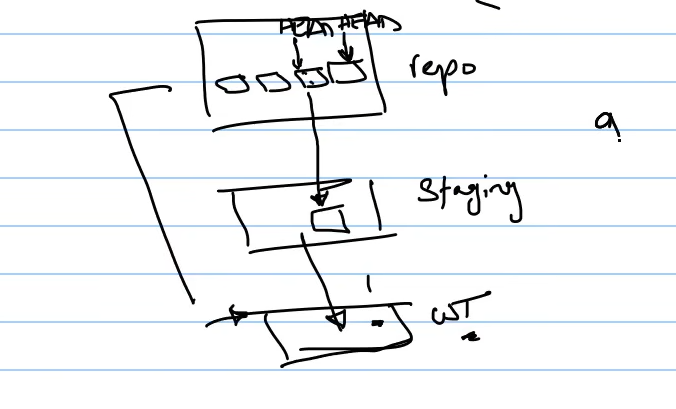 HEAD HEAD
repo
a
Staging
WT